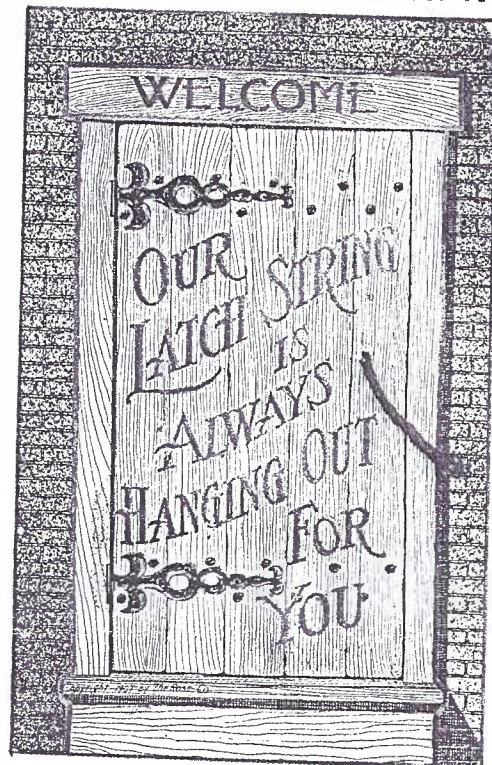 WELCOME
OUR
LATCH STRING
IS
ALWAYS
HANGING OUT
FOR
YOU
Copyright 1907 by The Rose Co.